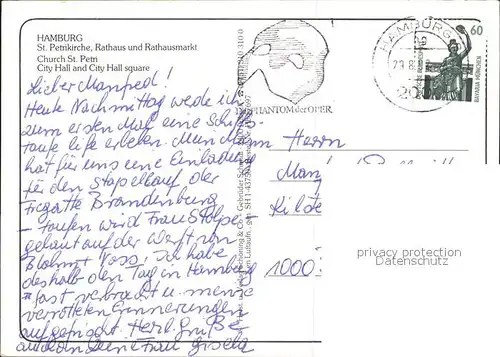 HAMBURG
St. Petrikirche, Rathaus und Rathausmarkt
Church St. Petri
City Hall and City Hall square
Lieber Manfred!
Heute Nachmittag werde ich
zum ersten Mal eine Schiffs-
taufe life erleben. Mein Mann
hat für uns eine Einladung
für den Stapellauf der
Fregatte Brandenburg
- taufen wird Frau Stolpe -
gebaut auf der Werft von
Blohm + Voss. Ich habe
deshalb den Tag in Hamburg
fast verbracht u. meine
verrotteten Erinnerungen
aufgefrischt. Herzl. Grüße
auch an Deine Frau Gisela
PHANTOM der OPER
HAMBURG
20
60
BAVARIA MÜNCHEN
Herrn
Man
1000
privacy protection
Datenschutz